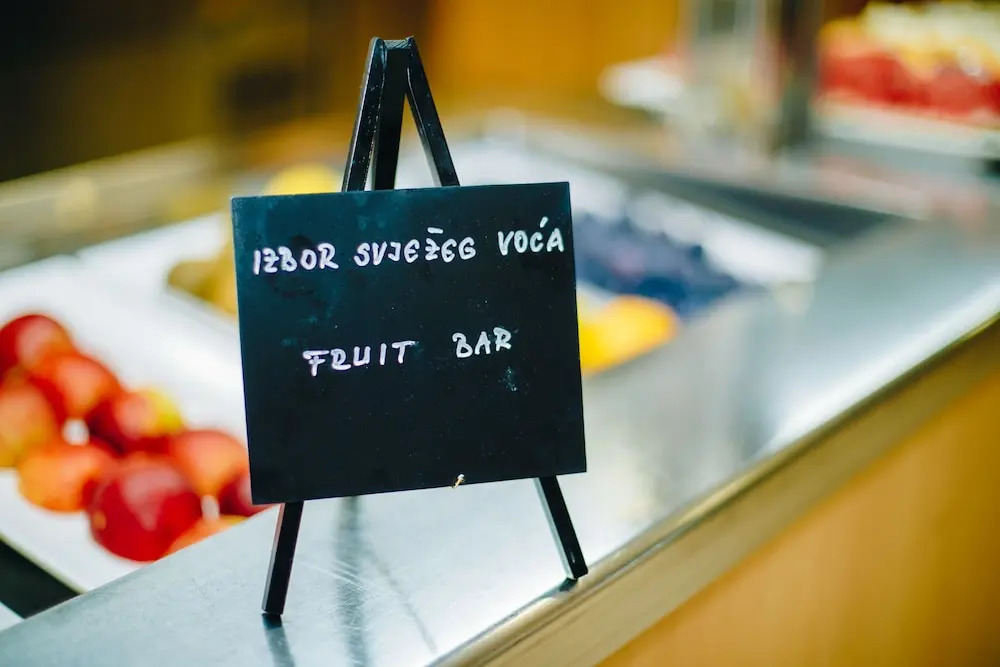 IZBOR SVJEŽEG VOĆA
FRUIT BAR